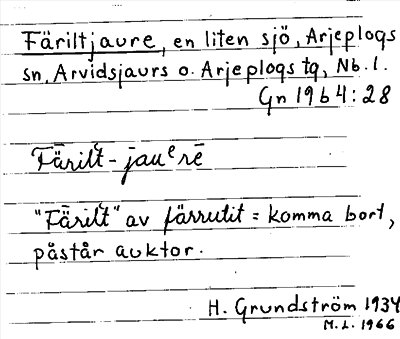 Färiltjaure, en liten sjö, Arjeplogs
sn, Arvidsjaurs o. Arjeplogs tg, Nb. l.
Gn 1964:28
Fäˉrilt̆-jauᵉrē
"Fäˉrilt̆" av färrutit = komma bort,
påstår auktor.
H. Grundström 1934
M. L. 1966